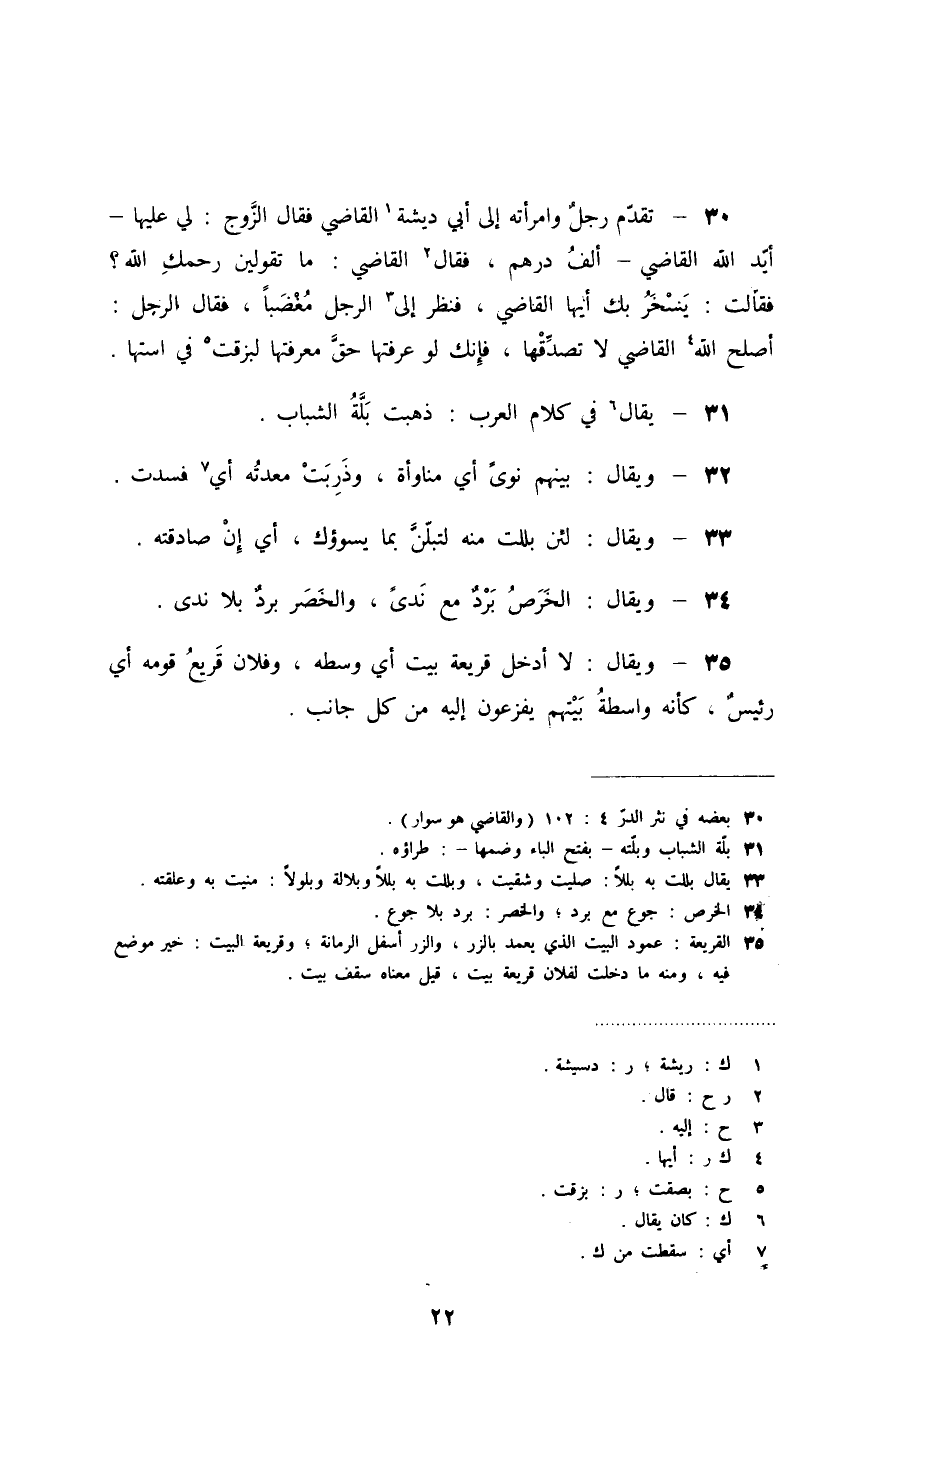 ٣٠ – تقدّم رجلٌ وامرأته إلى أبي ديشة١ القاضي فقال الزَّوج : لي عليها –
أيّد الله القاضي – ألفُ درهم ، فقال٢ القاضي : ما تقولين رحمكِ الله ؟
فقالت : يَسْخَرُ بك أيها القاضي ، فنظر إلى٣ الرجل مُغْضَباً ، فقال الرجل :
أصلح الله٤ القاضي لا تصدِّقْها ، فإنك لو عرفتها حقَّ معرفتها لبزقت٥ في استها .
٣١ – يقال٦ في كلام العرب : ذهبت بَلَّةُ الشباب .
٣٢ – ويقال : بينهم نوىً أي مناوأة ، وذَرِبَتْ معدتُه أي٧ فسدت .
٣٣ – ويقال : لئن بللت منه لتبلّنَّ بما يسوؤك ، أي إنْ صادقته .
٣٤ – ويقال : الخَرَصُ بَرْدٌ مع نَدىً ، والخَصَر بردٌ بلا ندى .
٣٥ – ويقال : لا أدخل قريعة بيت أي وسطه ، وفلان قَريعُ قومه أي
رئيسٌ ، كأنه واسطةُ بَيْتهم يفزعون إليه من كل جانب .
٣٠ بعضه في نثر الدرّ ٤ : ١٠٢ (والقاضي هو سوار) .
٣١ بلّة الشباب وبلّته – بفتح الباء وضمها – : طراؤه .
٣٣ يقال بللت به بللاً : صليت وشقيت ، وبللت به بللاً وبلالة وبلولاً : منيت به وعلقته .
٣٤ الخرص : جوع مع برد ؛ والخصر : برد بلا جوع .
٣٥ القريعة : عمود البيت الذي يعمد بالزر ، والزر أسفل الرمانة ؛ وقريعة البيت : خير موضع
فيه ، ومنه ما دخلت لفلان قريعة بيت ، قيل معناه سقف بيت .
١ ك : ريشة ؛ ر : دسيشة .
٢ ر ح : قال .
٣ ح : إليه .
٤ ك ر : أيها .
٥ ح : بصقت ؛ ر : بزقت .
٦ ك : كان يقال .
٧ أي : سقطت من ك .
٢٢